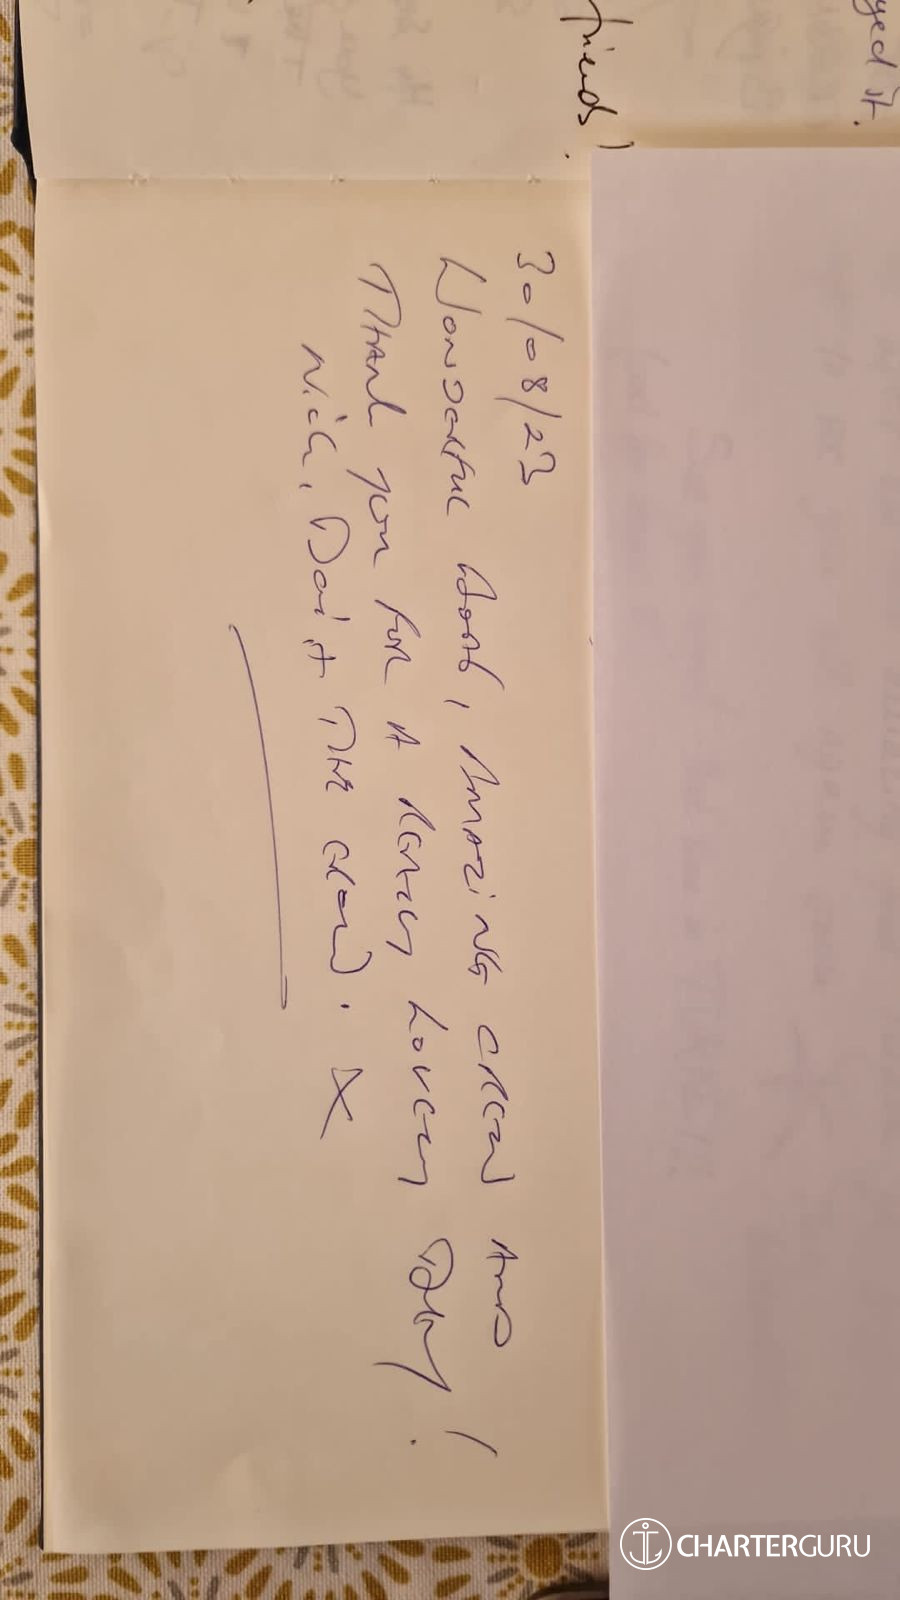 yed it.
friends!
30/08/23
WONDERFUL BOAT, AMAZING CREW AND
THANK YOU FOR A REALLY LOVELY DAY!
NICK, & THE CREW. X
CHARTERGURU